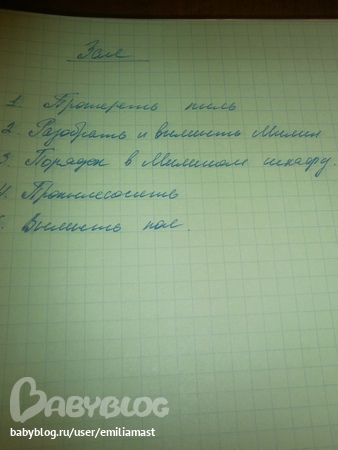 Зал
1. Протереть пыль
2. Разобрать и вымыть Милин
3. Порядок в Милином шкафу.
4. Пропылесосить
5. Вымыть пол.
BABYBLOG
babyblog.ru/user/emiliamast